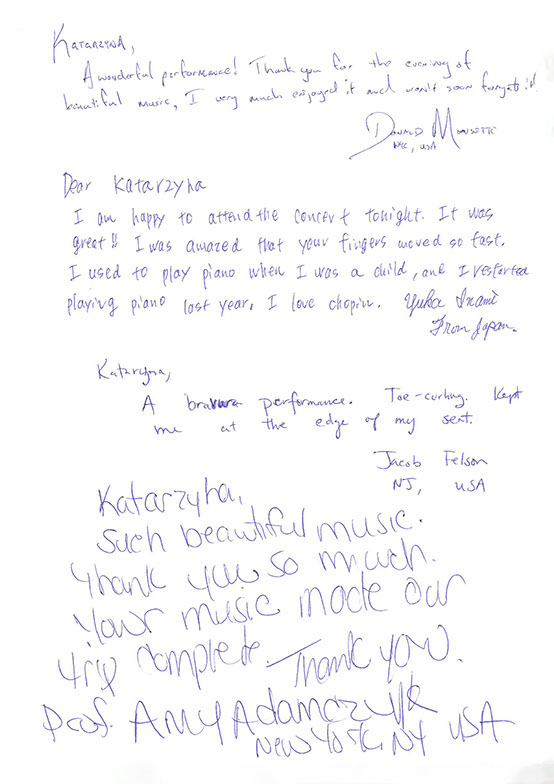 Katarzyna,
A wonderful performance! Thank you for the evening of
beautiful music, I very much enjoyed it and won't soon forget it!
Donald
NYC, USA
Dear Katarzyna
I am happy to attend the concert tonight. It was
great!! I was amazed that your fingers moved so fast.
I used to play piano when I was a child, and I restarted
playing piano last year. I love chopin. Yuka Inami
From Japan.
Katarzyna,
A bravura performance. Toe-curling. Kept
me at the edge of my seat.
Jacob Felson
NJ, USA
Katarzyna,
Such beautiful music.
Thank you so much.
Your music made our
trip complete. Thank you.
Prof. Amy Adamczyk
New York, NY USA